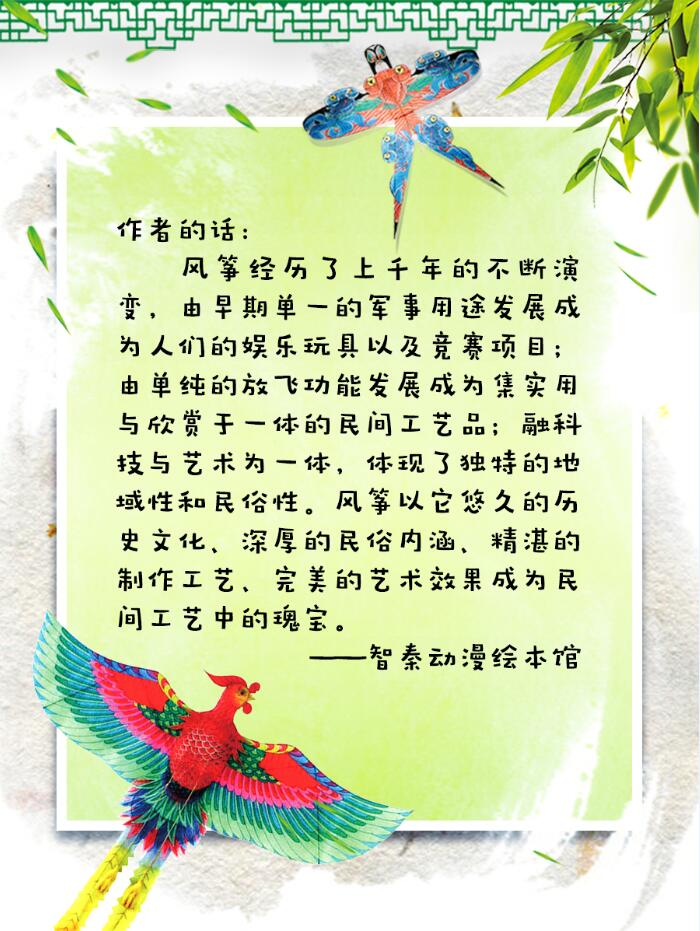 作者的话：
风筝经历了上千年的不断演
变，由早期单一的军事用途发展成
为人们的娱乐玩具以及竞赛项目；
由单纯的放飞功能发展成为集实用
与欣赏于一体的民间工艺品；融科
技与艺术为一体，体现了独特的地
域性和民俗性。风筝以它悠久的历
史文化、深厚的民俗内涵、精湛的
制作工艺、完美的艺术效果成为民
间工艺中的瑰宝。
——智秦动漫绘本馆